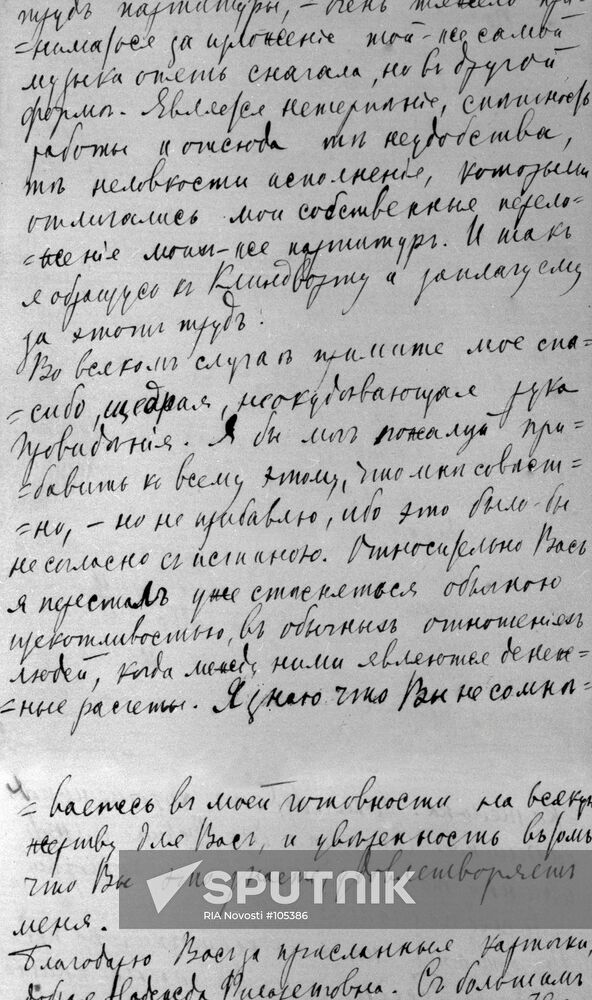 трудъ партитуры, – очень тяжело при=
=нимаюсь за изложеніе той-же самой
музыки опять сначала, но въ другой
формѣ. Является нетерпѣніе, спѣшность
работы и отсюда тѣ неудобства,
тѣ неловкости исполненія, которыми
отличались мои собственныя перело=
=женія моихъ-же партитуръ. И такъ
я обращусь къ Клиндворту и заплачу ему
за этотъ трудъ.
Во всякомъ случаѣ примите мое спа=
=сибо, щедрая, неоскудѣвающая рука
Провидѣнія. Я бы могъ пожалуй при=
=бавить ко всему этому, что мнѣ совѣст=
=но, – но не прибавлю, ибо это было-бы
несогласно съ истиною. Относительно Васъ
я пересталъ уже стѣсняться обычною
щекотливостью, въ обычныхъ отношеніяхъ
людей, когда между ними являются денеж=
=ные расчеты. Я знаю что Вы не сомнѣ=
=ваетесь въ моей готовности на всякую
жертву для Васъ, и увѣренность въ томъ
что Вы удовлетворяетъ
меня.
Благодарю Васъ за присланныя карточки,
добрая Надежда Филаретовна. Съ большимъ
SPUTNIK
RIA Novosti #105386